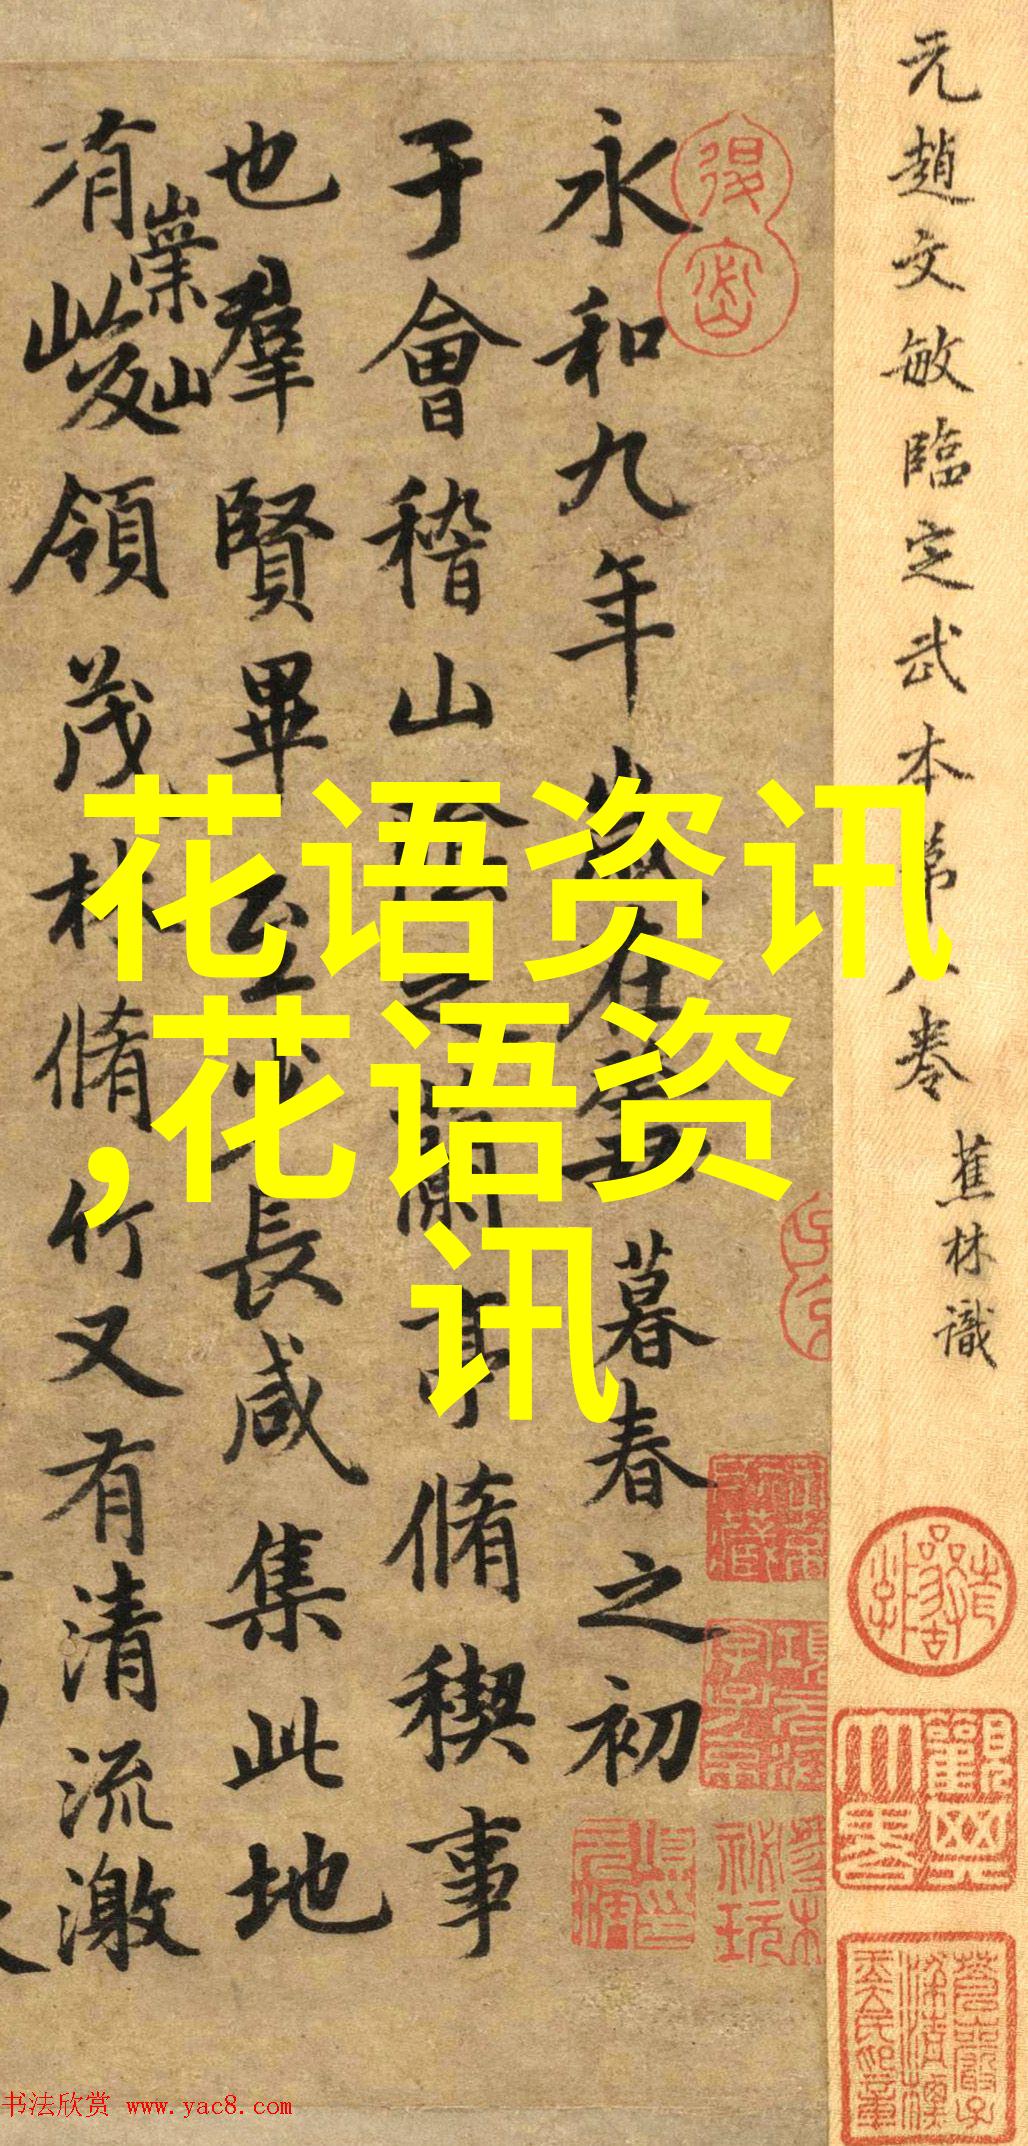 元趙文敏臨定武本第八卷
蕉林識
永和九年歲在癸丑暮春之初
于會稽山陰之蘭亭脩稧事
也羣賢畢至少長咸集此地
有崇山峻領茂林脩竹又有清流激
花语资讯
,花语资
讯
书法欣赏 www.yac8.com